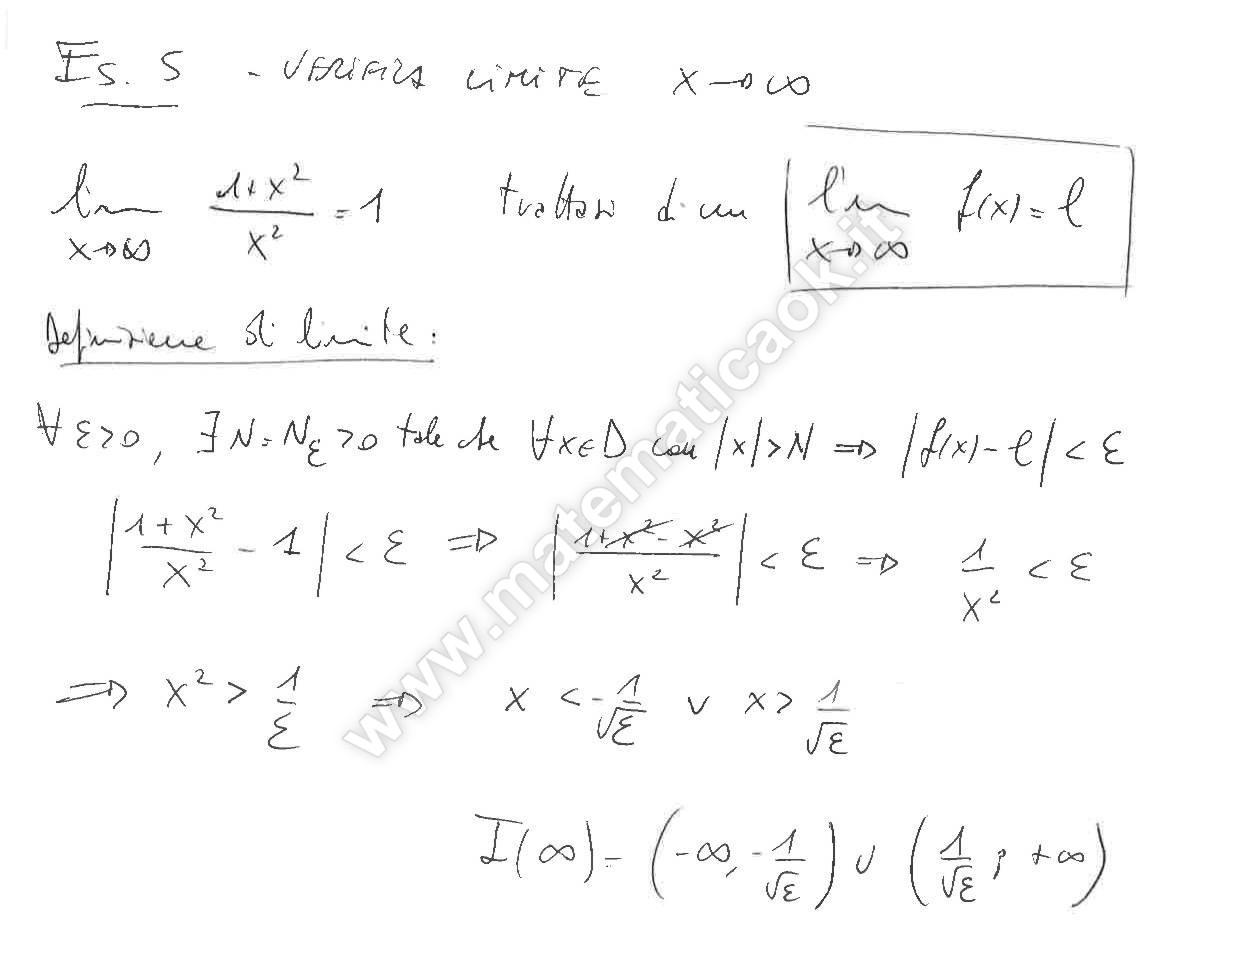 Es. 5 - VERIFICA LIMITE x→∞
lim x→∞ (1+x²)/x² = 1 trattasi di un lim x→∞ f(x) = l
Definizione di limite:
∀ε>0, ∃N=Nε>0 tale che ∀x∈D con |x|>N ⇒ |f(x)-l|<ε
|(1+x²)/x² - 1| < ε ⇒ |(1+x²-x²)/x²| < ε ⇒ 1/x² < ε
⇒ x² > 1/ε ⇒ x < -1/√ε ∨ x > 1/√ε
I(∞) = (-∞, -1/√ε) ∪ (1/√ε; +∞)
www.matematicaok.it